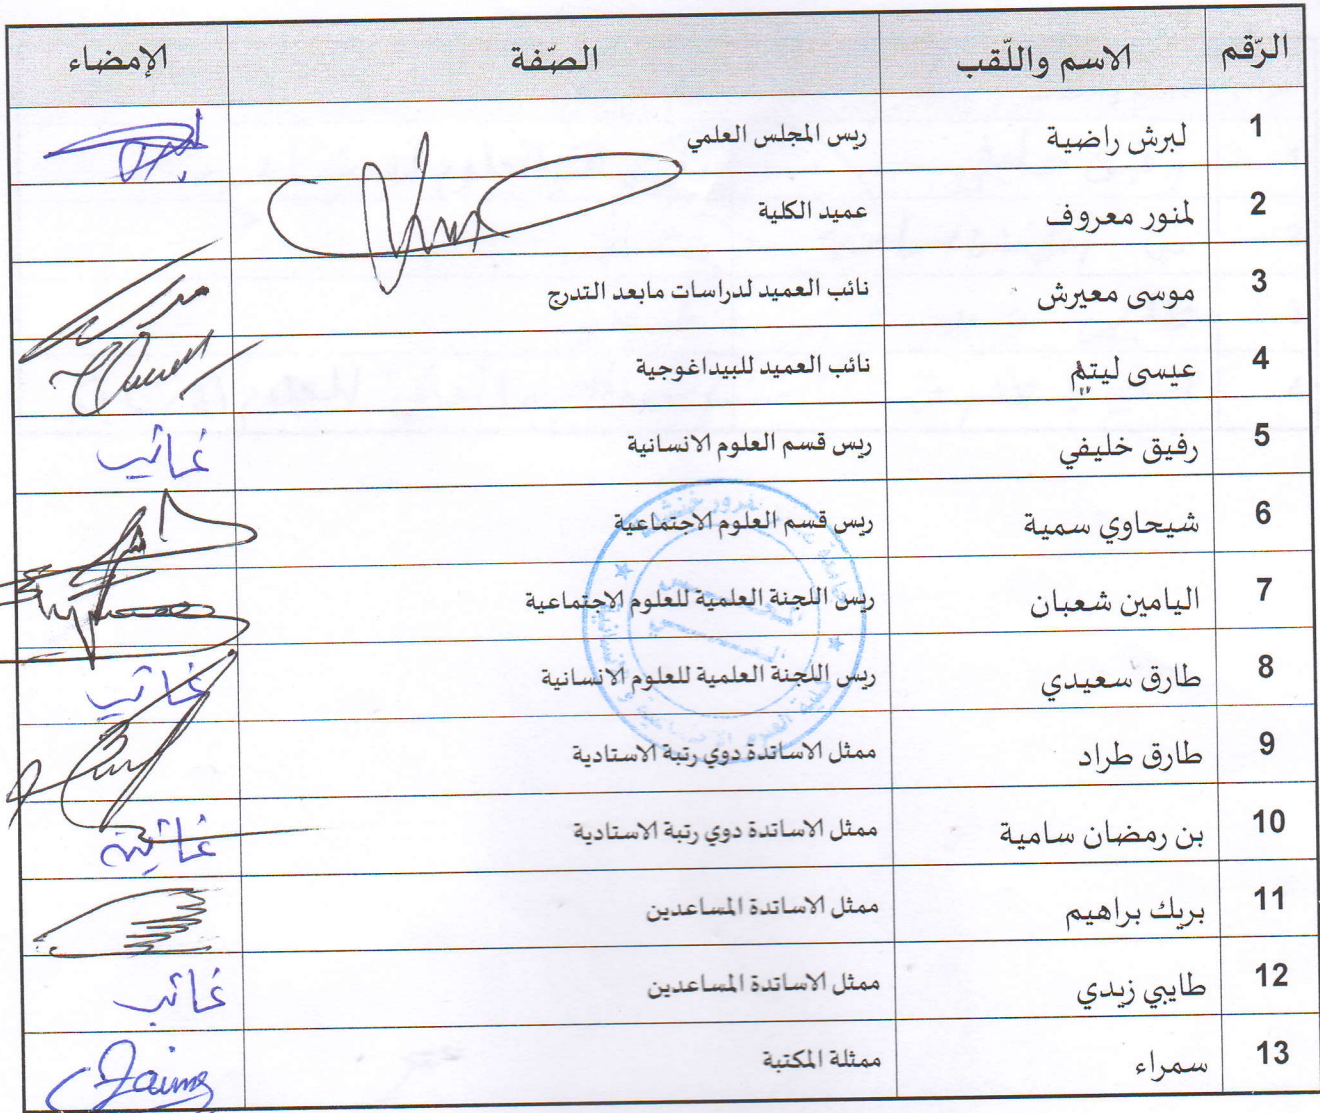 الرّقم الاسم واللّقب الصّفة الإمضاء
1 لبرش راضية ريس المجلس العلمي
2 لمنور معروف عميد الكلية
3 موسى معيرش نائب العميد لدراسات مابعد التدرج
4 عيسى ليتيم نائب العميد للبيداغوجية
5 رفيق خليفي ريس قسم العلوم الانسانية غائب
6 شيحاوي سمية ريس قسم العلوم الاجتماعية
7 اليامين شعبان ريس اللجنة العلمية للعلوم الاجتماعية
8 طارق سعيدي ريس اللجنة العلمية للعلوم الانسانية غائب
9 طارق طراد ممثل الاساتدة دوي رتبة الاستادية
10 بن رمضان سامية ممثل الاساتدة دوي رتبة الاستادية غائبة
11 بريك براهيم ممثل الاساتدة المساعدين
12 طايبي زيدي ممثل الاساتدة المساعدين غائب
13 سمراء ممثلة المكتبة